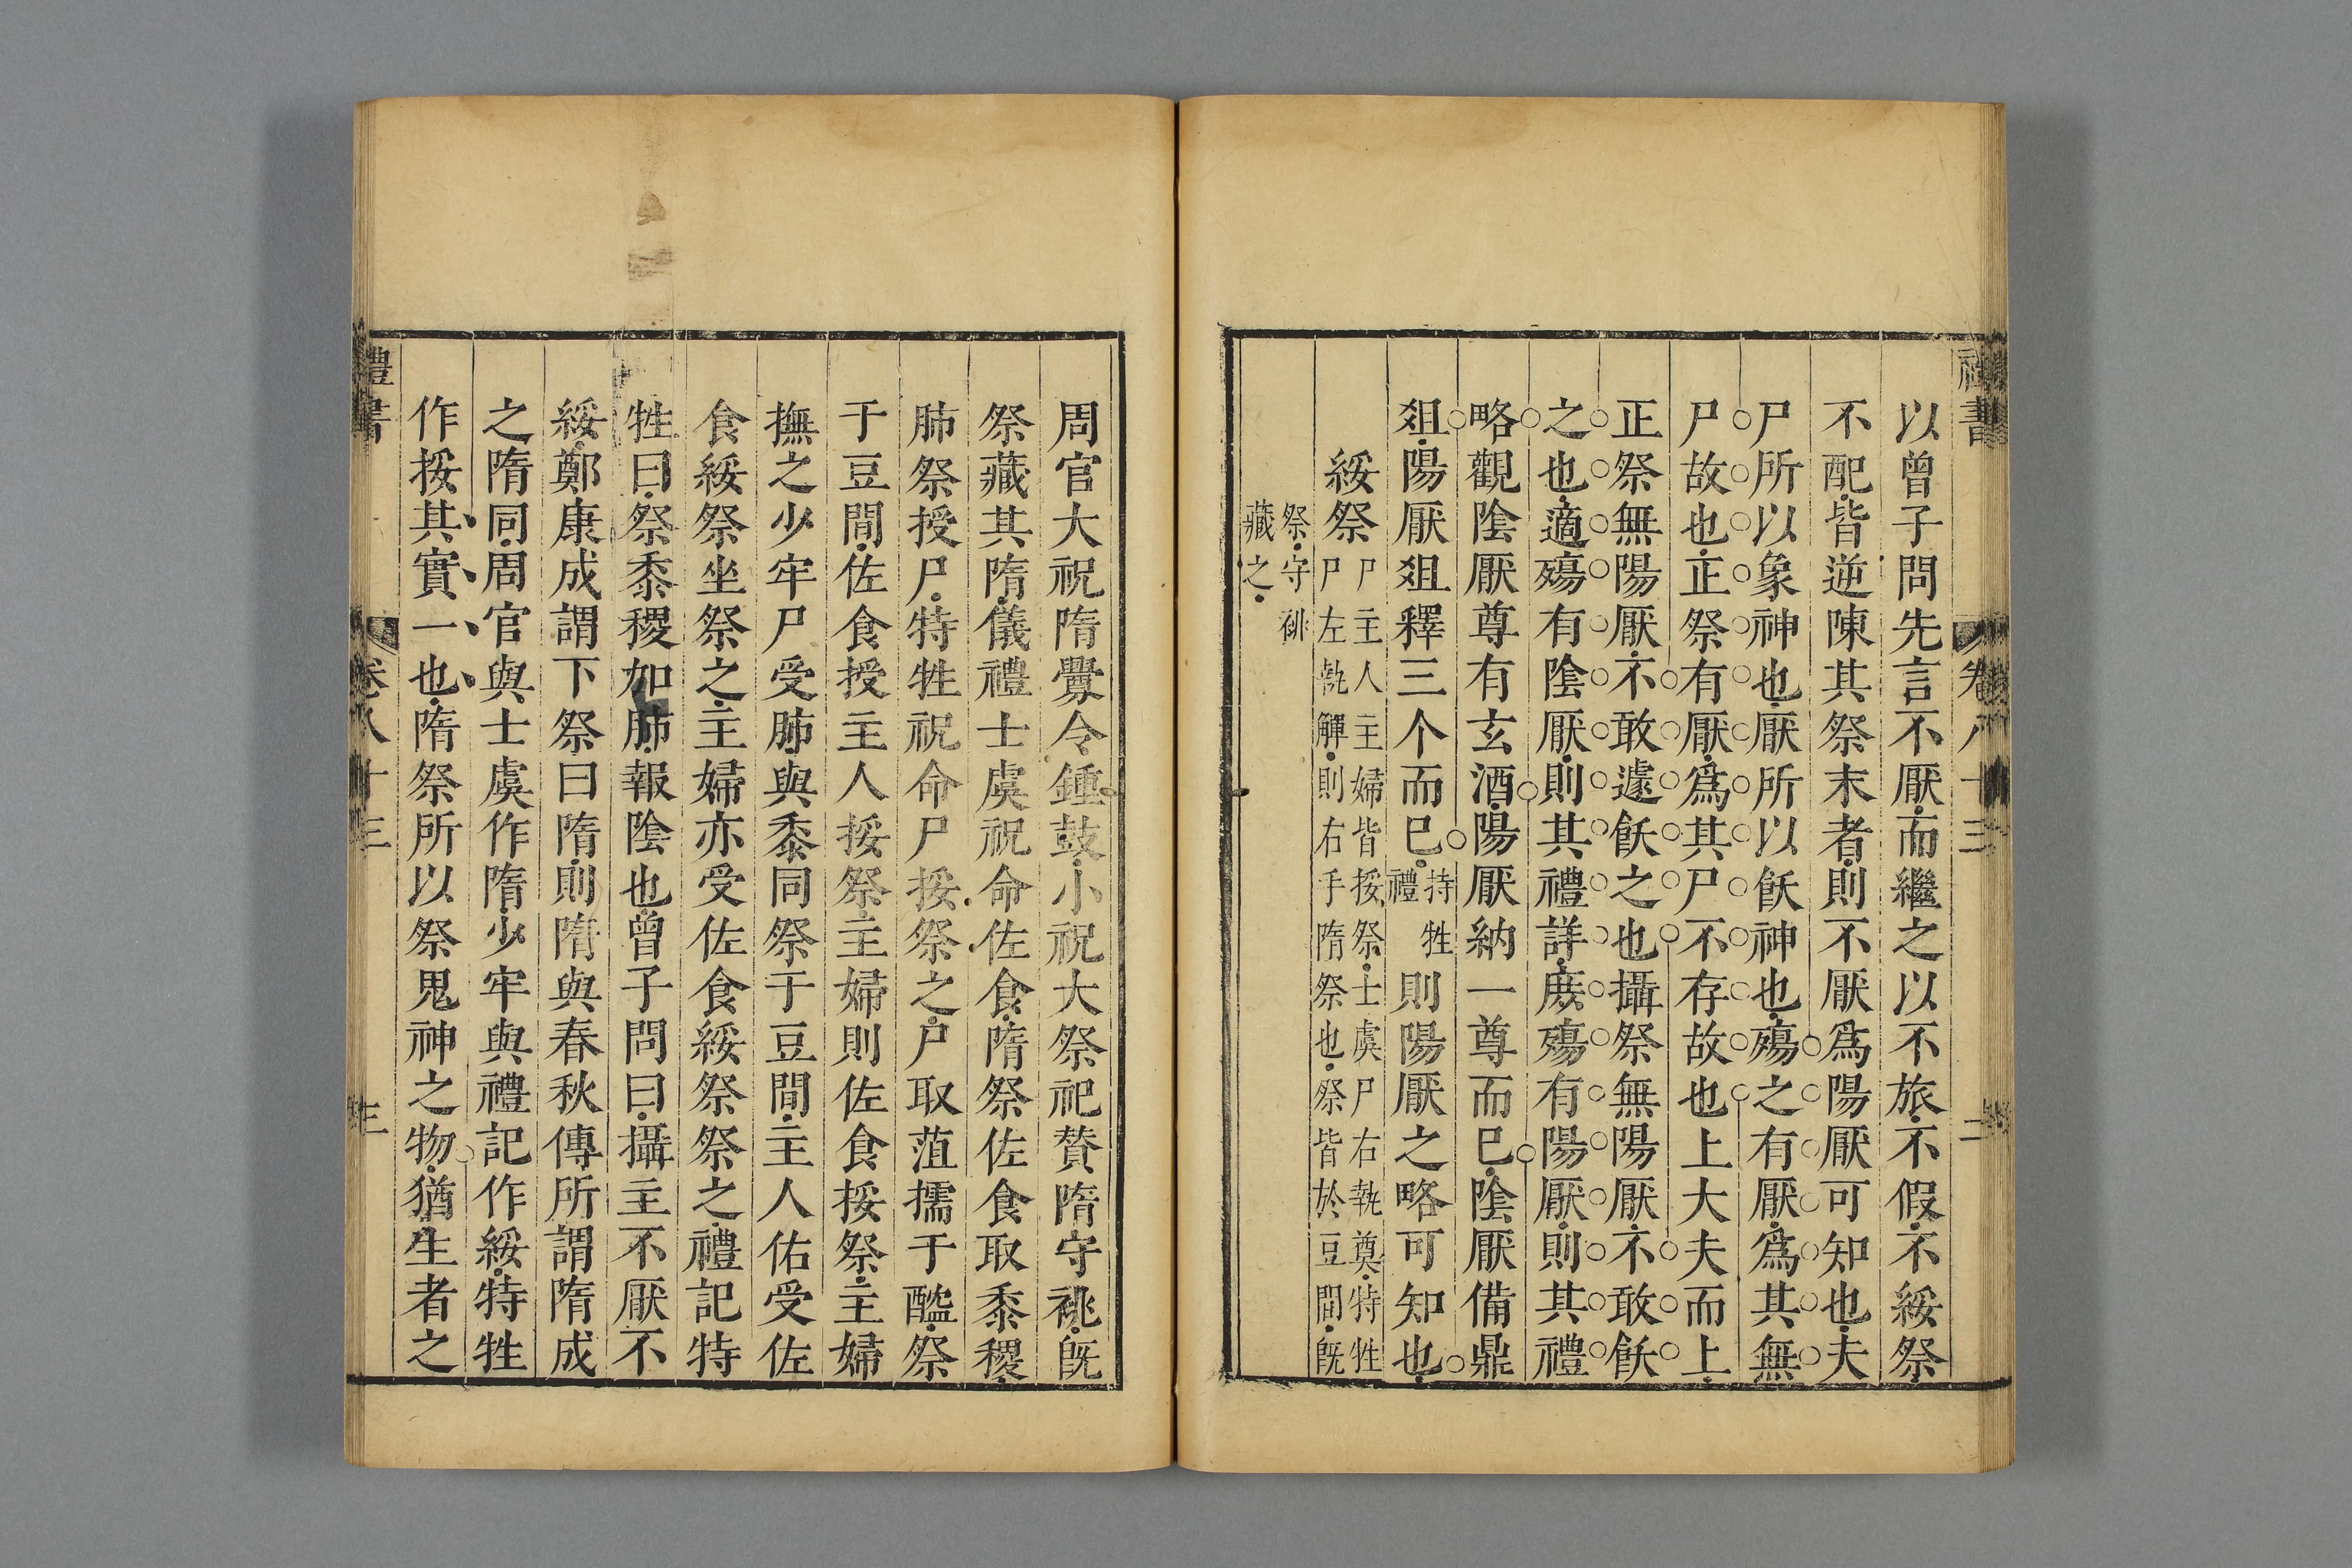 禮書 卷八十三 二
以曾子問先言不厭而繼之以不旅不假不綏祭
不配皆逆陳其祭末者則不厭爲陽厭可知也夫
尸所以象神也厭所以飫神也殤之有厭爲其無
尸故也正祭有厭爲其尸不存故也上大夫而上
正祭無陽厭不敢遽飫之也攝祭無陽厭不敢飫
之也適殤有陰厭則其禮詳庶殤有陽厭則其禮
略觀陰厭尊有玄酒陽厭納一尊而已陰厭備鼎
俎陽厭俎釋三个而已特牲禮則陽厭之略可知也
綏祭尸主人主婦皆挼祭士虞尸右執奠特牲
尸左執觶則右手隋祭也祭皆於豆間既
祭守祧
藏之
周官大祝隋釁令鍾鼓小祝大祭祀贊隋守祧既
祭藏其隋儀禮士虞祝命佐食隋祭佐食取黍稷
肺祭授尸特牲祝命尸挼祭之尸取菹擩于醢祭
于豆間佐食授主人挼祭主婦則佐食挼祭主婦
撫之少牢尸受肺與黍同祭于豆間主人佑受佐
食綏祭坐祭之主婦亦受佐食綏祭祭之禮記特
牲曰祭黍稷如肺報陰也曾子問曰攝主不厭不
綏鄭康成謂下祭曰隋則隋與春秋傳所謂隋成
之隋同周官與士虞作隋少牢與禮記作綏特牲
作挼其實一也隋祭所以祭鬼神之物猶生者之
禮書 卷八十三 三